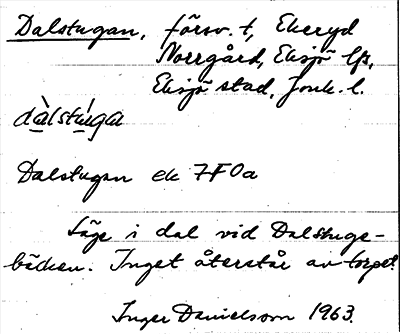 Dalstugan, försv. t, Ekeryd
Norrgård, Eksjö lfs,
Eksjö stad, Jönk. l.
dàlstúga
Dalstugan ek 7F0a
Läge i dal vid Dalstuge-
bäcken. Inget återstår av torpet.
Inger Danielsson 1963.